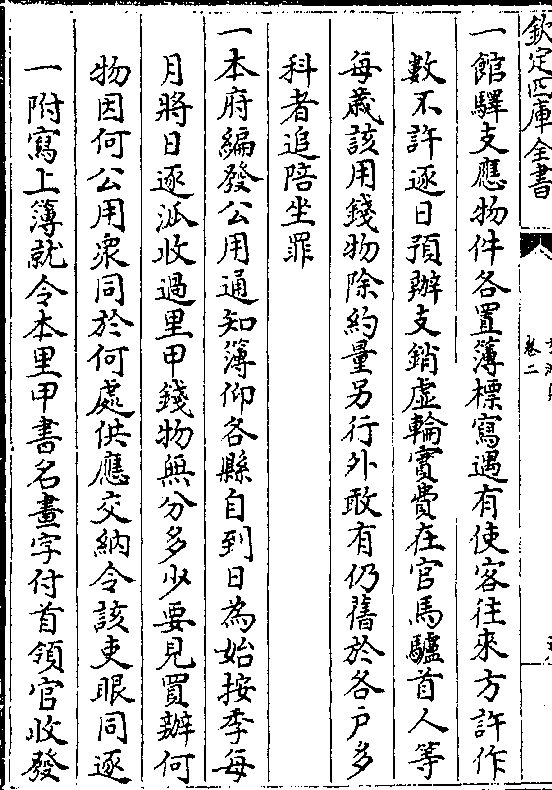 欽定四庫全書
卷二
一館驛支應物件各置簿標寫遇有使客往來方許作
數不許逐日預辦支銷虛輪實費在官馬驢首人等
每歲該用錢物除約量另行外敢有仍舊於各戶多
科者追陪坐罪
一本府編發公用通知簿仰各縣自到日為始按季每
月將日逐派收過里甲錢物無分多少要見買辦何
物因何公用衆同於何處供應交納令該吏眼同逐
一附寫上簿就令本里甲書名畫字付首領官收發